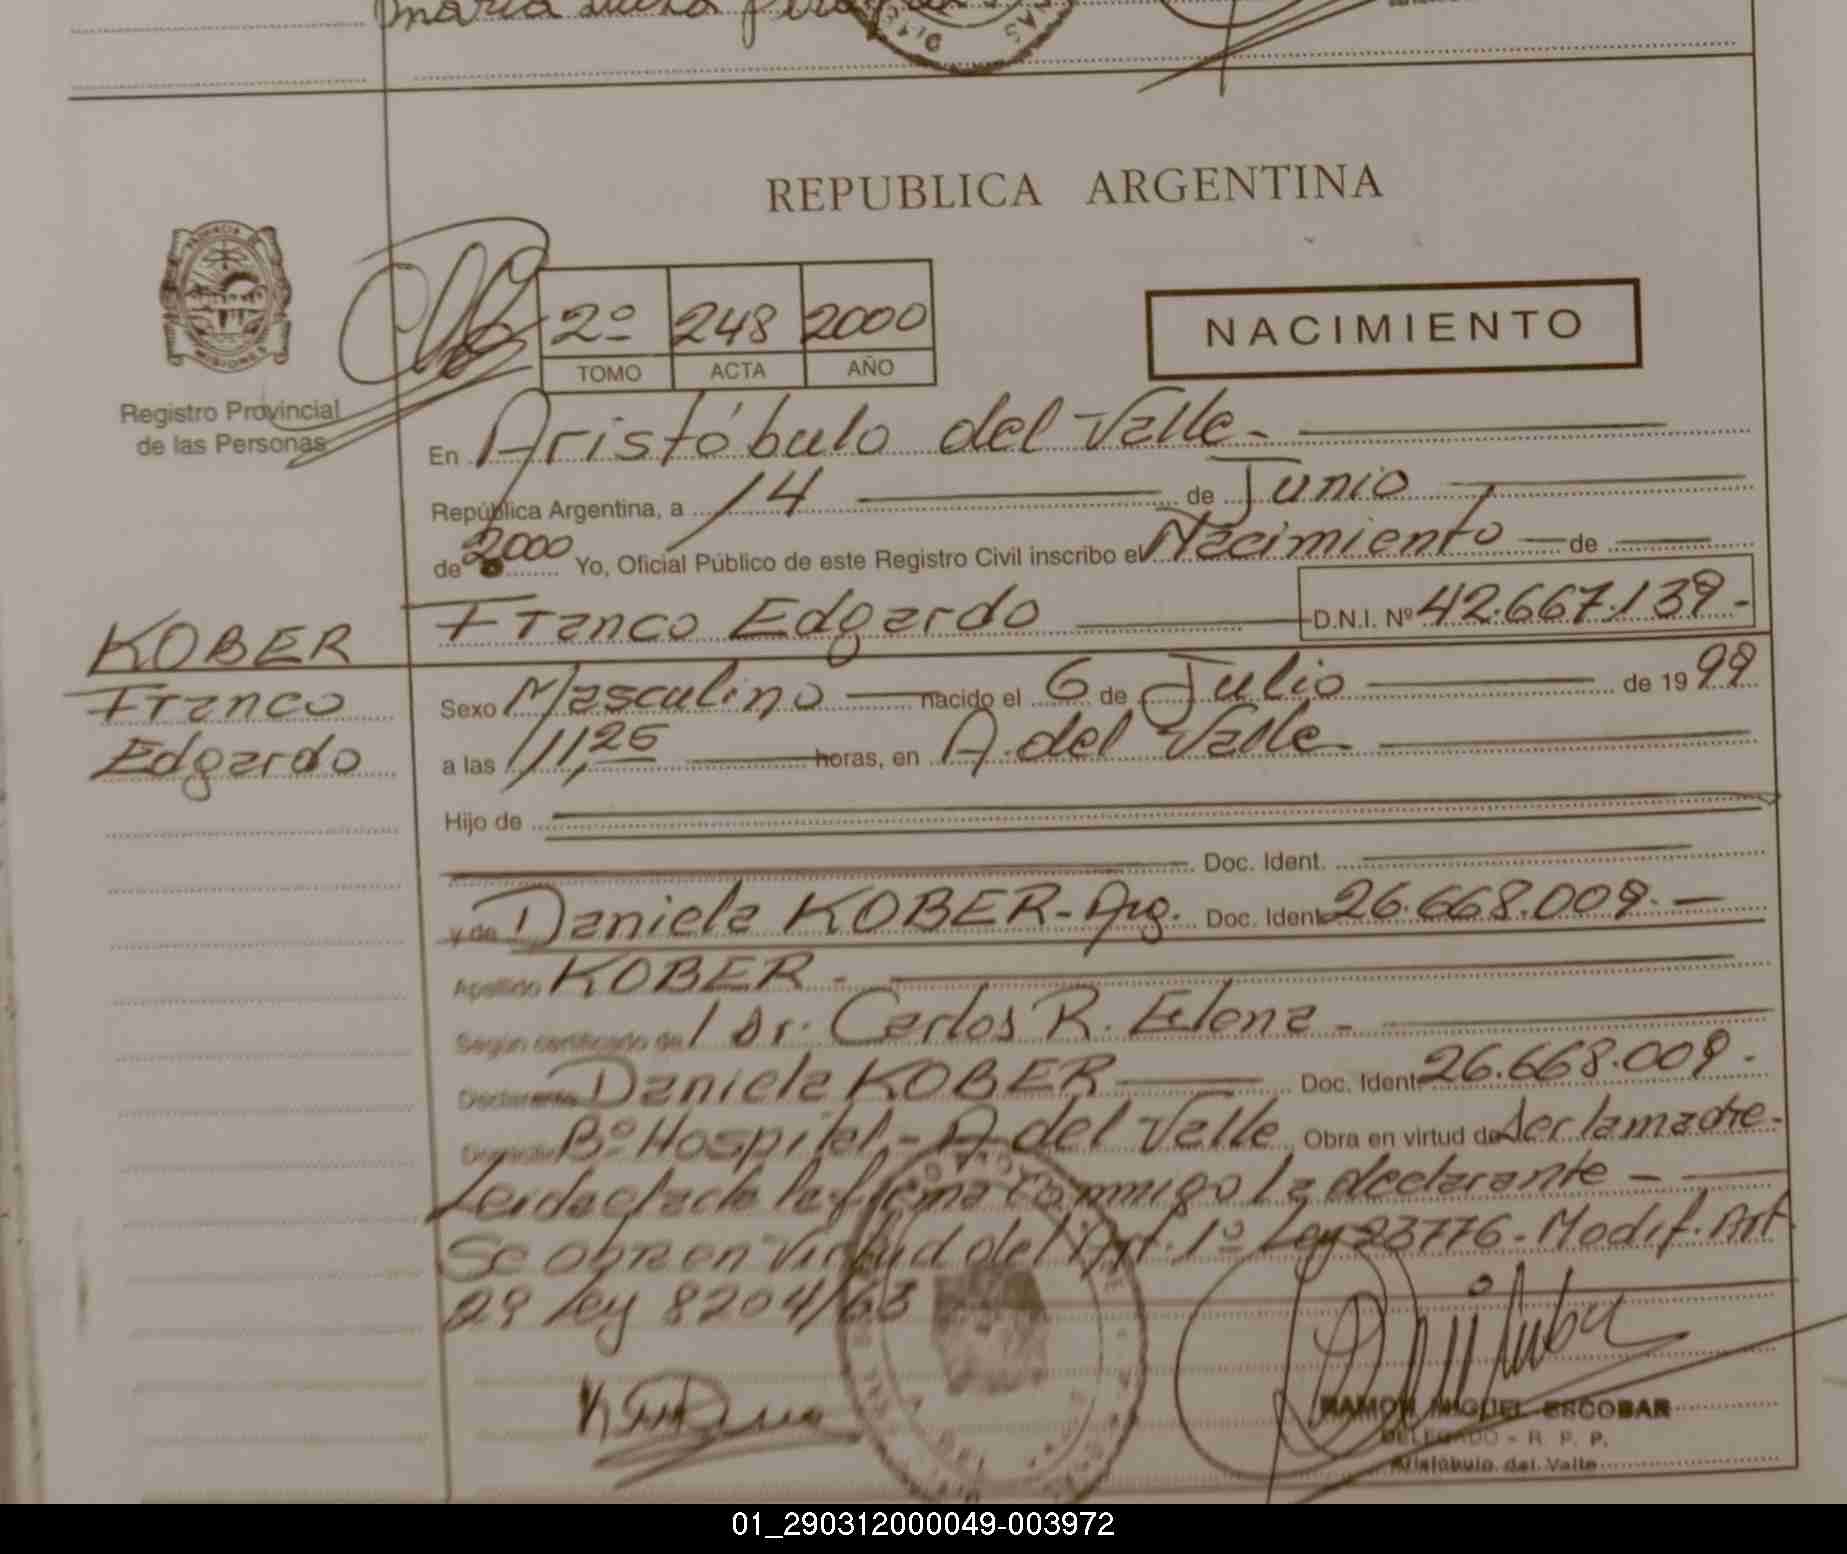 maria
REPUBLICA ARGENTINA
PROVINCIA
MISIONES
Registro Provincial
de las Personas
2º 248 2000
TOMO ACTA AÑO
NACIMIENTO
En Aristóbulo del Valle.-
República Argentina, a 14 de Junio
de 2000 Yo, Oficial Público de este Registro Civil inscribo el Nacimiento de
Franco Edgardo D.N.I. Nº 42.667.139.-
KOBER
Franco
Edgardo
Sexo Masculino nacido el 6 de Julio de 1999
a las 11,25 horas, en A. del Valle
Hijo de
Doc. Ident.
y de Daniela KOBER-Arg. Doc. Ident. 26.668.009.-
Apellido KOBER.-
Según certificado de l Dr. Carlos R. Elena-
Declarante Daniela KOBER Doc. Ident. 26.668.009.-
Domicilio Bº Hospital,- A. del Valle Obra en virtud de ser la madre.-
Leida el acta la firma conmigo la declarante-
Se obra en virtud del Art. 1º Ley 23776-Modif. Art.
29 Ley 8204/63
RAMON MIGUEL ESCOBAR
DELEGADO - R. P. P.
Aristóbulo del Valle
01_290312000049-003972